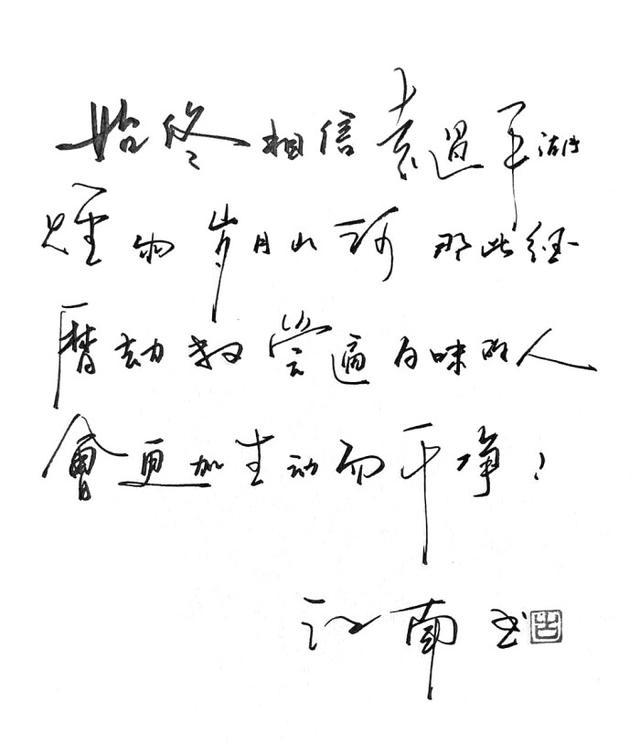 始终相信走過平湖
煙雨岁月山河那些经
曆劫数尝遍百味的人
會更加生动而干净！
江南书